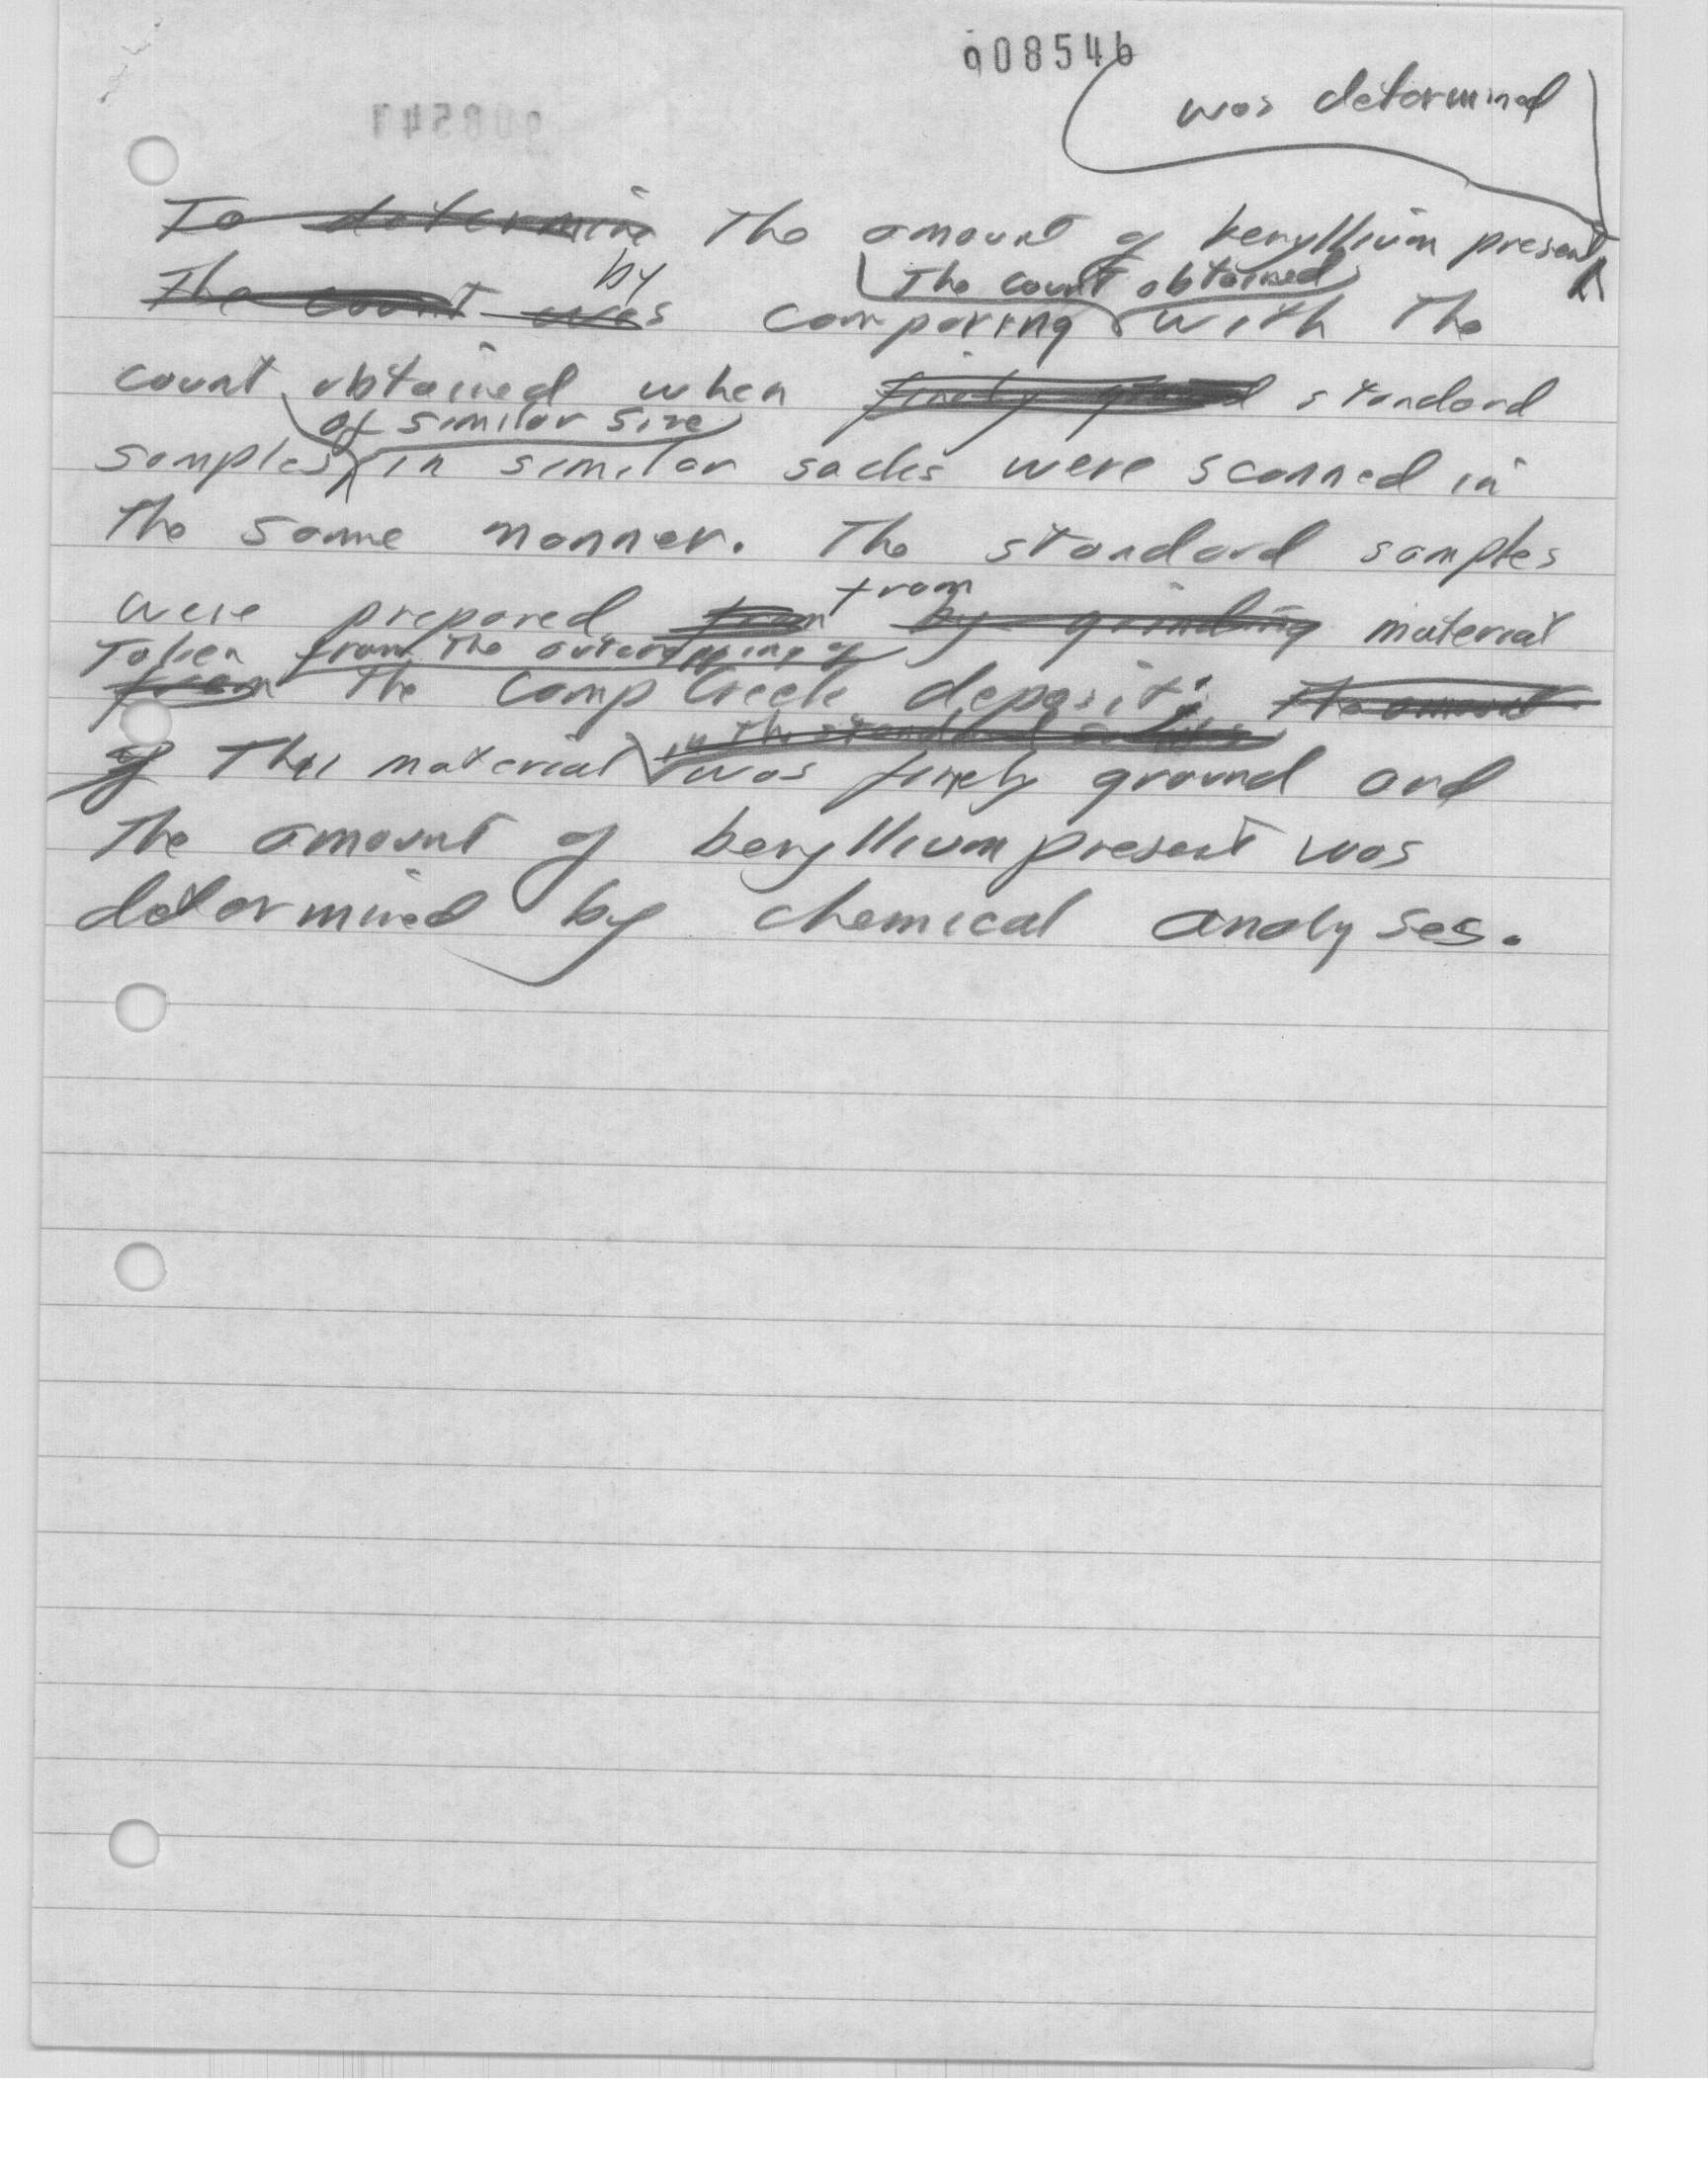 908546
was determined
To determine The amount of beryllium present
by The count obtained
The count was comparing with The
count obtained when finely ground standard
of similar size
samples in similar sacks were scanned in
The same manner. The standard samples
from
were prepared from by grinding material
Taken from The outcropping of
from The Camp Creek deposit. The amount
in The standard samples
of This material was finely ground and
The amount of beryllium present was
determined by chemical analyses.